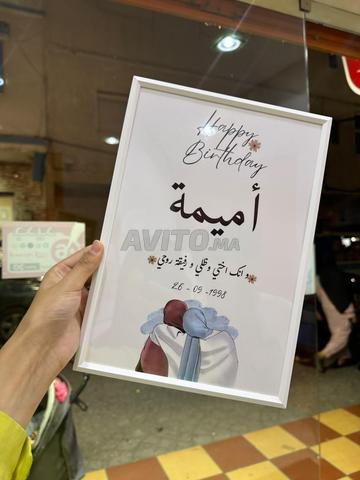 Happy
Birthday
أميمة
AVITO.MA
وانك اختي وظلي ورفيقة روحي
26 - 09 - 1998